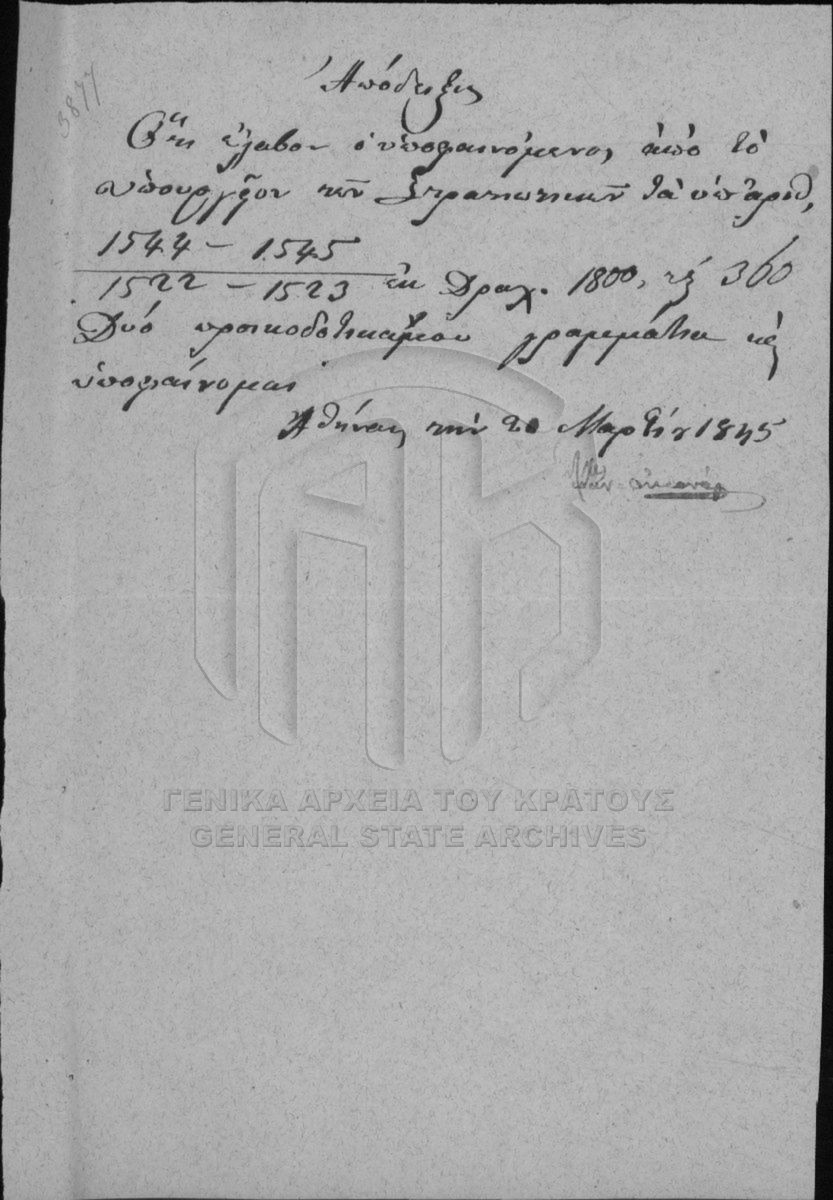 3877
Ἀπόδειξις
Ὅτι ἔλαβον ὁ ὑποφαινόμενος ἀπὸ τὸ
Ὑπουργεῖον τῶν Στρατιωτικῶν τὰ ὑπ' ἀριθ.
1544 – 1545
1522 – 1523 ἐκ Δραχ. 1800, 360
Δύο προικοδοτικα γραμμάτια κ
ὑποφαίνομαι
Ἀθήνας τὴν 20 Μαρτίου 1845
ΓΕΝΙΚΑ ΑΡΧΕΙΑ ΤΟΥ ΚΡΑΤΟΥΣ
GENERAL STATE ARCHIVES